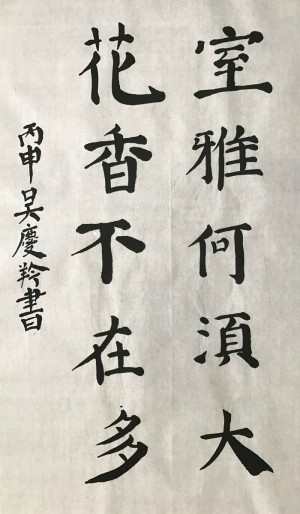 室雅何須大
花香不在多
丙申吴慶羚書